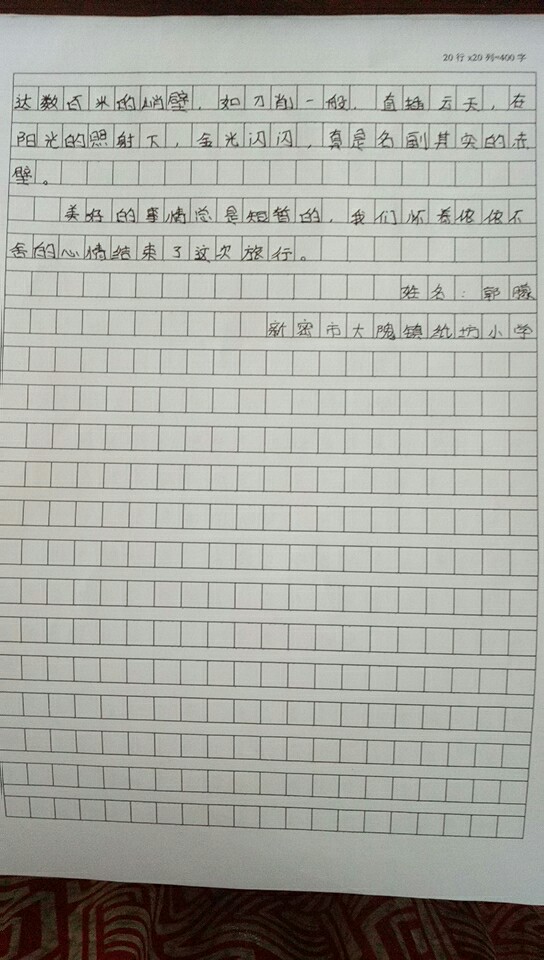 20 行 x20 列=400 字
达数百米的峭壁，如刀削一般，直插云天，在
阳光的照射下，金光闪闪，真是名副其实的赤
壁。
美好的事情总是短暂的，我们怀着依依不
舍的心情结束了这次旅行。
姓名：郭朦
新密市大隗镇纸坊小学